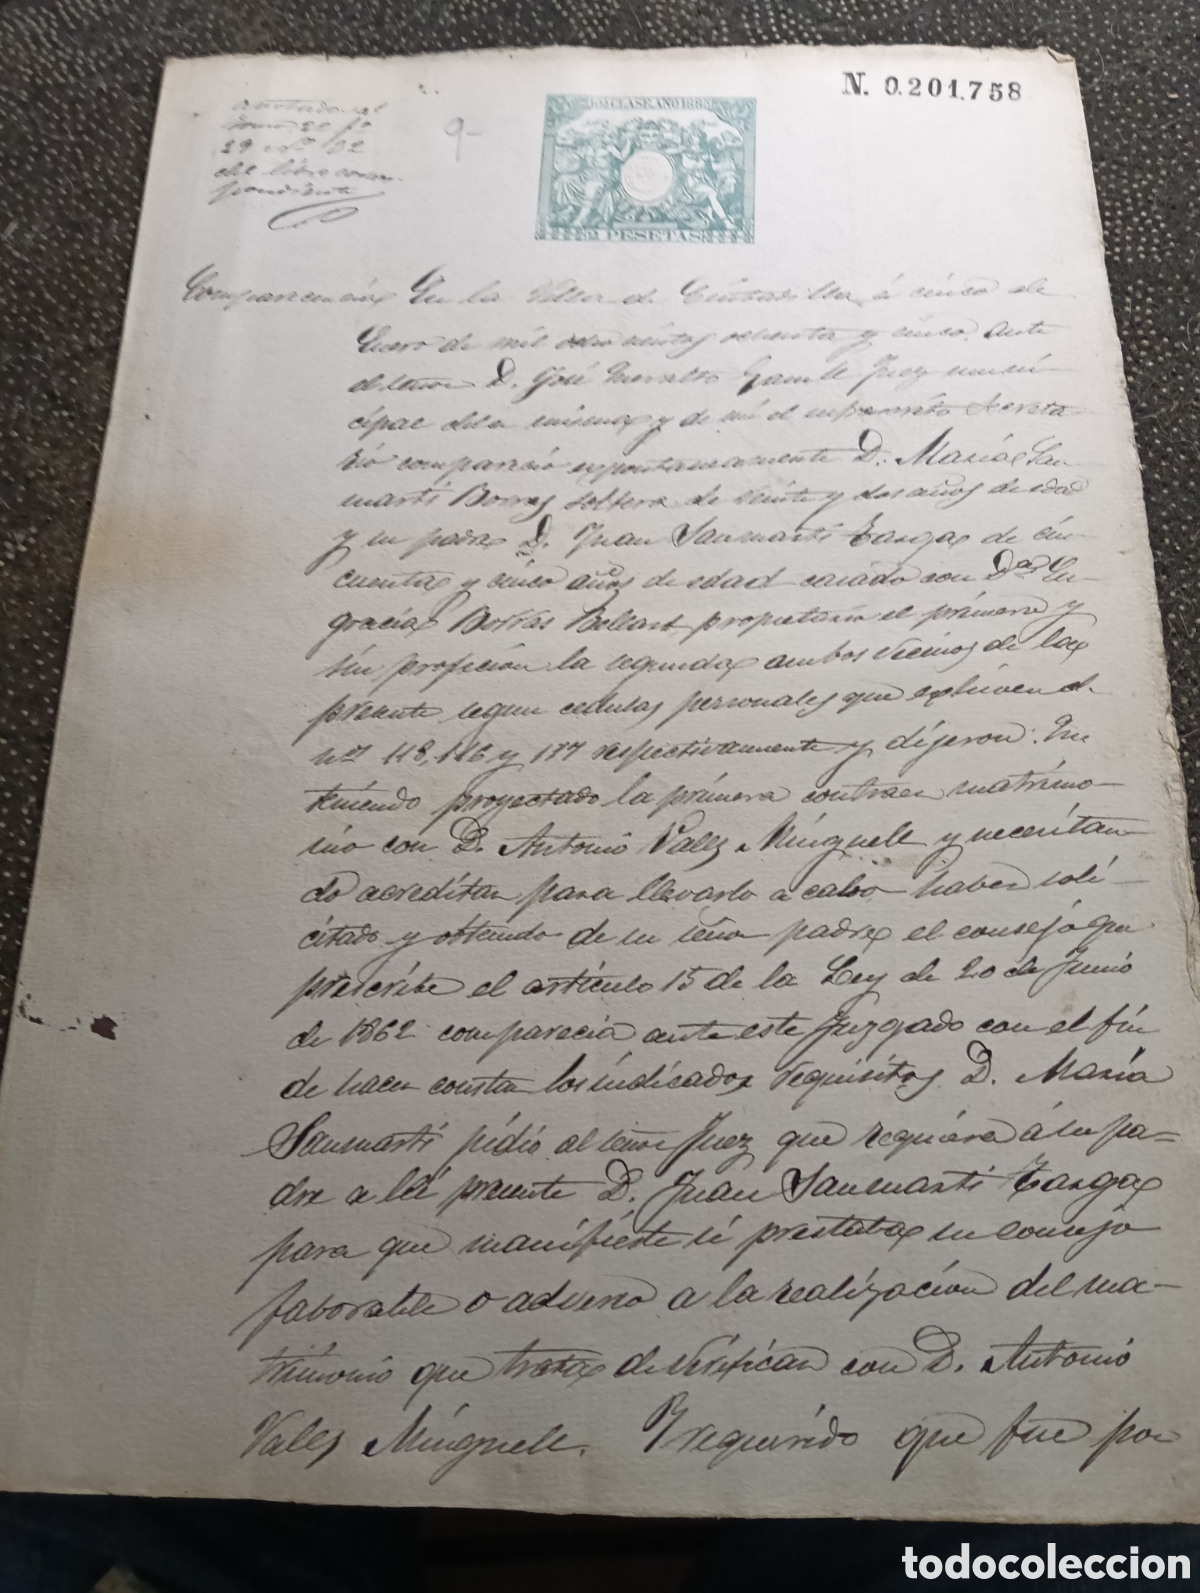 N. 0.201.758
10ª CLASE. AÑO 1885
2 PESETAS
anotado al
tomo 20 fº
29 nº 92
del libro corres-
pondiente
9-
Comparecencia En la Villa de Ciutadilla, á cinco de
Enero de mil ochocientos ochenta y cinco ante
el señor D. José Juez muni-
cipal de la misma y de mi el infrascrito Secreta
rio compareció expontaneamente D. María San
martí Borras soltera de veinte y dos años de edad
y su padre D. Juan Sanmartí Targa de cin-
cuenta y cinco años de edad casado con Dª En-
gracia Borrás propietario el primero y
sin profición la segunda ambos vecinos de la
presente segun cedulas personales que exhiven d
nº 118, 116 y 177 respectivamente y dijeron: Que
teniendo proyectado la primera contraer matrimo-
nio con D. Antonio Valls Minguell y necesitan
do acreditar para llevarlo a cabo haber soli-
citado y obtenido de su señor padre el consejo que
prescribe el artículo 15 de la Ley de 20 de Junio
de 1862 comparecía ante este Juzgado con el fin
de hacer constar los indicados requisitos D. María
Sanmartí pidió al señor Juez que requiera á su pa-
dre a lá presente D. Juan Sanmartí Targa
para que manifieste si prestaba su consejo
faborable o adverso a la realización del ma-
trimonio que trata de verificar con D. Antonio
Valls Minguell. Y requerido que fue por
todocoleccion